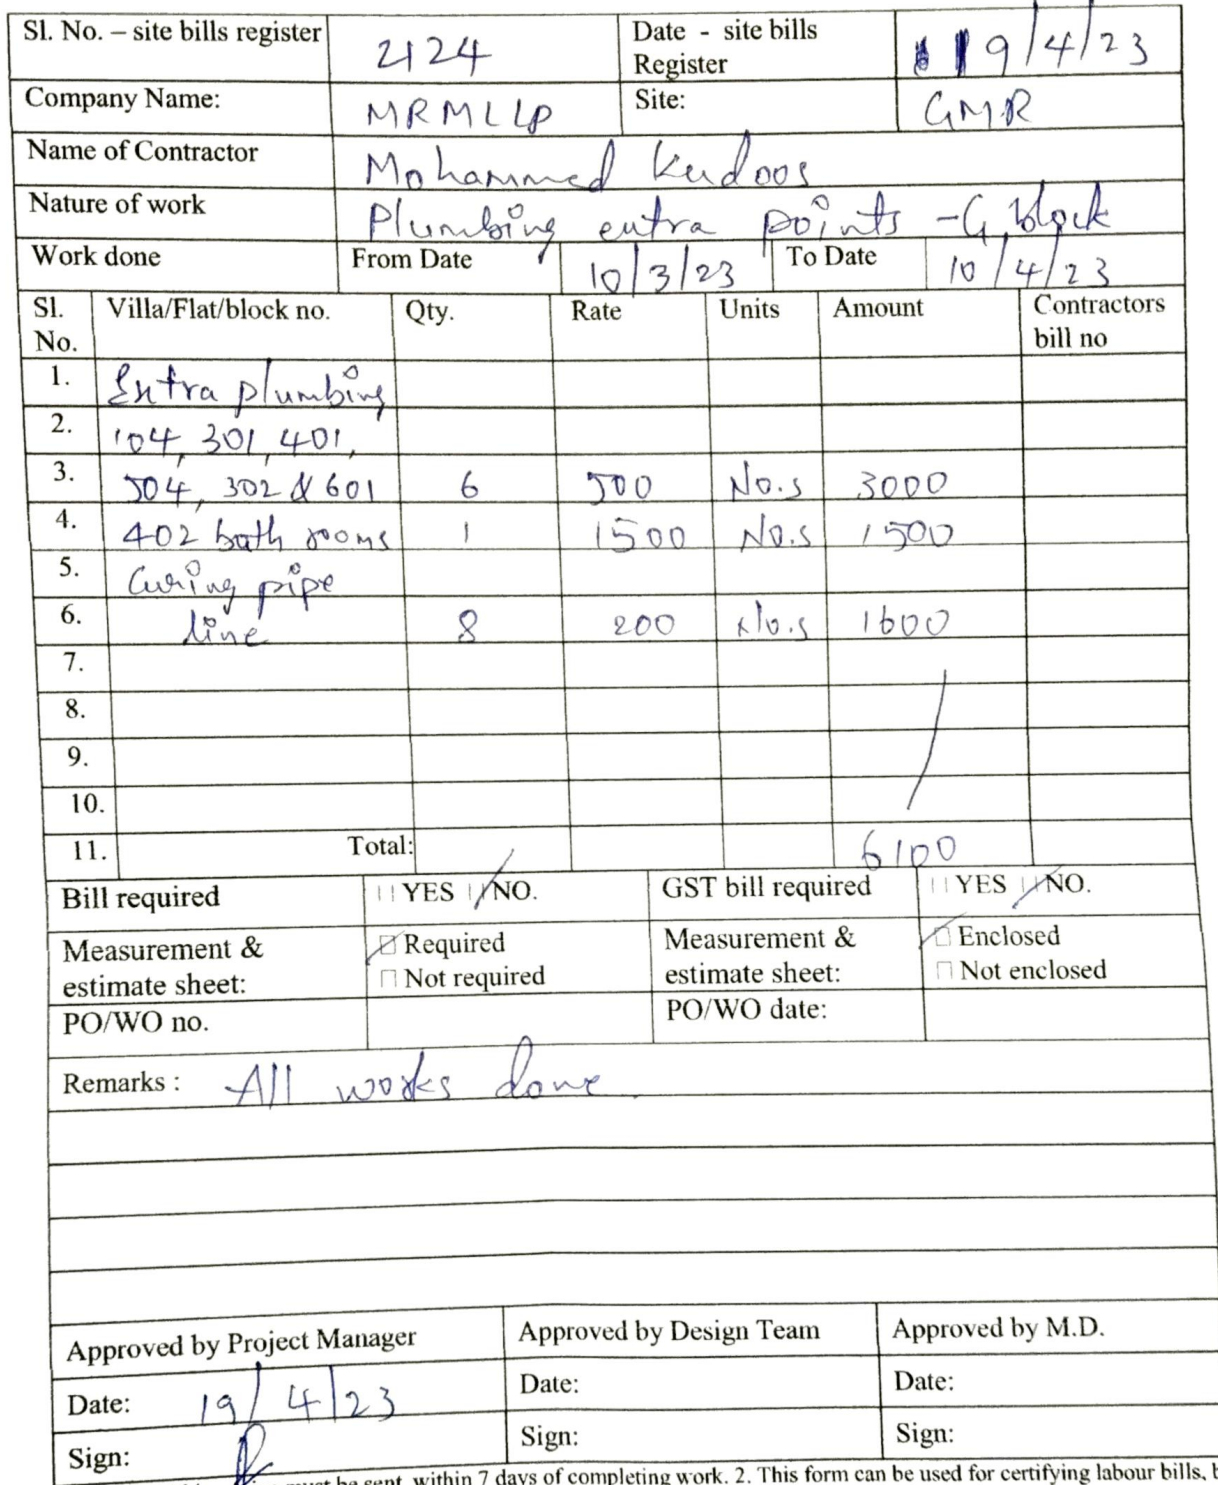 Sl. No. – site bills register 2124 Date - site bills Register 19/4/23
Company Name: MRMLLP Site: GMR
Name of Contractor Mohammed Kudoos
Nature of work Plumbing extra points - G block
Work done From Date 10/3/23 To Date 10/4/23
Sl. No. Villa/Flat/block no. Qty. Rate Units Amount Contractors bill no
1. Extra plumbing
2. 104, 301, 401,
3. 504, 302 & 601 6 500 No.s 3000
4. 402 bath rooms 1 1500 No.s 1500
5. Curing pipe
6. line 8 200 No.s 1600
7.
8.
9.
10.
11. Total: 6100
Bill required YES NO. GST bill required YES NO.
Measurement & estimate sheet: ☑ Required ☐ Not required Measurement & estimate sheet: ☑ Enclosed ☐ Not enclosed
PO/WO no. PO/WO date:
Remarks : All works done.
Approved by Project Manager Approved by Design Team Approved by M.D.
Date: 19/4/23 Date: Date:
Sign: Sign: Sign:
must be sent within 7 days of completing work. 2. This form can be used for certifying labour bills,